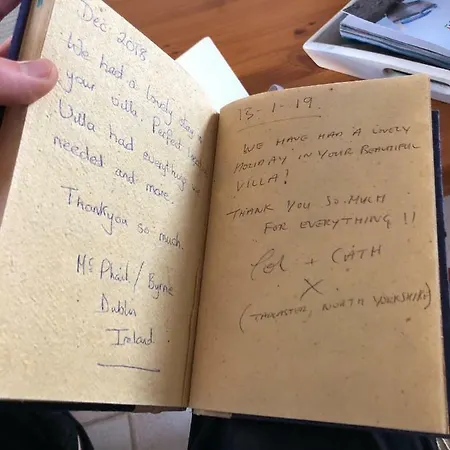 Dec. 2018
We had a lovely stay
your villa. Perfect
Villa had everything we
needed and more.
Thankyou so much.
McPhail / Byrne
Dublin
Ireland
13-1-19.
WE HAVE HAD A LOVELY
HOLIDAY IN YOUR BEAUTIFUL
VILLA!
THANK YOU SO MUCH
FOR EVERYTHING!!
Col + CATH
X
(TADCASTER, NORTH YORKSHIRE)